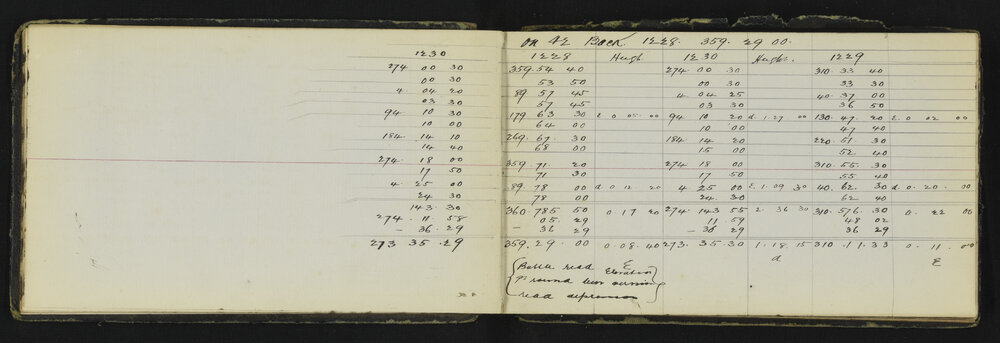 1230
274 00 30
00 30
4 04 20
03 30
94 10 30
10 00
184 14 10
14 00
274 18 00
17 50
4 25 00
24 30
143 30
274 11 58
- 36 29
273 35 29
on 42 Back 1228. 359. 29 00.
1228 Height 1230 Height. 1229
359.54 40 274.00 30 310.33 40
53 50 00 30 33 30
89 57 45 4 04 25 40.37 00
57 45 03 30 36 50
179 63 30 E. 0 05 00 94 10 20 d. 1.27 00 130.47.20 E. 0 02 00
64 00 10 00 47 40
269.67.30 184 14 20 220.51.30
68 00 15 00 52 40
359.71.20 274 18 00 310.55.30
71 30 17 50 55 40
89 78 00 d. 0 12 20 4 25 00 E. 1.09 30 40.62.30 d. 0. 20. 00
78 00 24 30 62 40
360.785 50 0 17 20 274.143 55 2. 36 30 310.576.30 0. 22 00
05.29 11.59 48 02
- 36 29 - 36 29 36 29
359.29.00 0.08.40 273.35.30 1.18.15 310.11.33 0. 11. 00
d E
Bubble read E Elevation
read depression